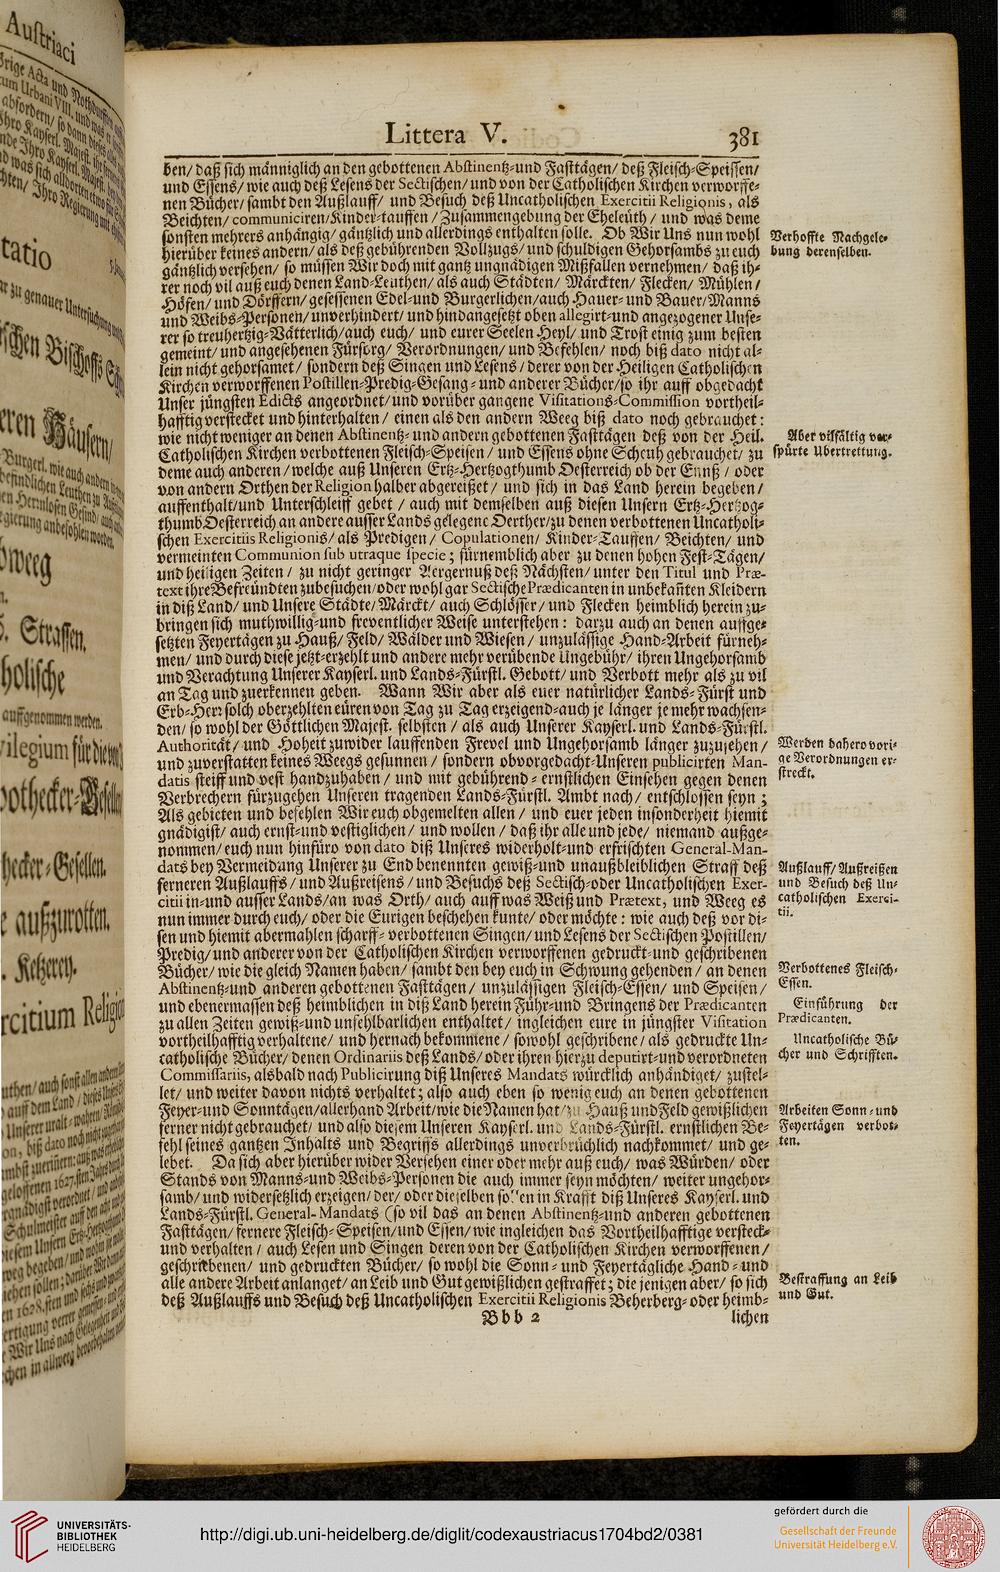 Littera V. 381
ben/ daß sich männiglich an den gebottenen Abstinentz-und Fasttägen/ deß Fleisch-Speissen/
und Essens/ wie auch deß Lesens der Sectischen/ und von der Catholischen Kirchen verworffe-
nen Bücher/ sambt den Außlauff/ und Besuch deß Uncatholischen Exercitii Religionis, als
Beichten/ communiciren/ Kinder-tauffen / Zusammengebung der Eheleüth/ und was deme
sonsten mehrers anhängig/ gäntzlich und allerdings enthalten solle. Ob Wir Uns nun wohl
hierüber keines andern/ als deß gebührenden Vollzugs/ und schuldigen Gehorsambs zu euch
gäntzlich versehen/ so müssen Wir doch mit gantz ungnädigen Mißfallen vernehmen/ daß ih-
rer noch vil auß euch denen Land-Leuthen/ als auch Städten/ Märckten/ Flecken/ Mühlen/
Höfen/ und Dörffern/ gesessenen Edel-und Burgerlichen/auch Hauer-und Bauer/Manns
und Weibs-Personen/ unverhindert/ und hindangesetzt oben allegirt-und angezogener Unse-
rer so treuhertzig-Vätterlich/auch euch/ und eurer Seelen Heyl/ und Trost einig zum besten
gemeint/ und angesehenen Fürsorg/ Verordnungen/ und Befehlen/ noch biß dato nicht al-
lein nicht gehorsamet/ sondern deß Singen und Lesens/ derer von der Heiligen Catholischen
Kirchen verworffenen Postillen-Predig-Gesang-und anderer Bücher/ so ihr auff obgedacht
Unser jüngsten Edicts angeordnet/ und vorüber gangene Visitations-Commission vortheil-
hafftig verstecket und hinterhalten/ einen als den andern Weeg biß dato noch gebrauchet:
wie nicht weniger an denen Abstinentz-und andern gebottenen Fasttägen deß von der Heil.
Catholischen Kirchen verbottenen Fleisch-Speisen/ und Essens ohne Scheuh gebrauchet/ zu
deme auch anderen/ welche auß Unseren Ertz-Hertzogthumb Oesterreich ob der Ennß/ oder
von andern Orthen der Religion halber abgereißet/ und sich in das Land herein begeben/
auffenthalt/und Unterschleiff gebet / auch mit demselben auß diesen Unsern Ertz-Hertzog-
thumb Oesterreich an andere ausser Lands gelegene Oerther/zu denen verbottenen Uncatholi-
schen Exercitiis Religionis/ als Predigen / Copulationen/ Kinder-Tauffen/ Beichten/ und
vermeinten Communion sub utraque specie; fürnemblich aber zu denen hohen Fest-Tägen/
und heiligen Zeiten / zu nicht geringer Aergernuß deß Nächsten/ unter den Titul und Præ-
text ihre Befreündten zubesuchen/oder wohl gar Sectische Prædicanten in unbekañten Kleidern
in diß Land/ und Unsere Städte/ Märckt/ auch Schlösser/ und Flecken heimblich herein zu-
bringen sich muthwillig-und freventlicher Weise unterstehen: darzu auch an denen auffge-
setzten Feyertägen zu Hauß/ Feld/ Wälder und Wiesen/ unzulässige Hand-Arbeit fürneh-
men/ und durch diese jetzt-erzehlt und andere mehr verübende Ungebühr/ ihren Ungehorsamb
und Verachtung Unserer Kayserl. und Lands-Fürstl. Gebott/ und Verbott mehr als zu vil
an Tag und zuerkennen geben. Wann Wir aber als euer natürlicher Lands-Fürst und
Erb-Herr solch oberzehlten eüren von Tag zu Tag erzeigend-auch je länger je mehr wachsen-
den/ so wohl der Göttlichen Majest. selbsten/ als auch Unserer Kayserl. und Lands-Fürstl.
Authorität/ und Hoheit zuwider lauffenden Frevel und Ungehorsamb länger zuzusehen/
und zuverstatten keines Weegs gesunnen/ sondern obvorgedacht-Unseren publicirten Man-
datis steiff und vest handzuhaben/ und mit gebührend-ernstlichen Einsehen gegen denen
Verbrechern fürzugehen Unseren tragenden Lands-Fürstl. Ambt nach/ entschlossen seyn;
Als gebieten und befehlen Wir euch obgemelten allen / und euer jeden insonderheit hiemit
gnädigist/ auch ernst-und vestiglichen/ und wollen / daß ihr alle und jede/ niemand außge-
nommen/ euch nun hinfüro von dato diß Unseres widerholt-und erfrischten General-Man-
dats bey Vermeidung Unserer zu End benennten gewiß-und unaußbleiblichen Straff deß
ferneren Außlauffs/ und Außreisens/ und Besuchs deß Sectisch-oder Uncatholischen Exer-
citii in-und ausser Lands/an was Orth/ auch auff was Weiß und Prætext, und Weeg es
nun immer durch euch/ oder die Eurigen beschehen kunte/ oder möchte: wie auch deß vor di-
sen und hiemit abermahlen scharff-verbottenen Singen/ und Lesens der Sectischen Postillen/
Predig/ und anderer von der Catholischen Kirchen verworffenen gedruckt-und geschribenen
Bücher/ wie die gleich Namen haben/ sambt den bey euch in Schwung gehenden/ an denen
Abstinentz-und anderen gebottenen Fasttägen/ unzulässigen Fleisch-Essen/ und Speisen/
und ebenermassen deß heimblichen in diß Land herein Führ-und Bringens der Prædicanten
zu allen Zeiten gewiß-und unfehlbarlichen enthaltet/ ingleichen eure in jüngster Visitation
vortheilhafftig verhaltene/ und hernach bekommene/ sowohl geschribene/ als gedruckte Un-
catholische Bücher/ denen Ordinariis deß Lands/ oder ihren hierzu deputirt-und verordneten
Commissariis, alsbald nach Publicirung diß Unseres Mandats würcklich anhändiget/ zustel-
let/ und weiter davon nichts verhaltet; also auch eben so wenig euch an denen gebottenen
Feyer-und Sonntägen/allerhand Arbeit/ wie die Namen hat/ zu Hauß und Feld gewißlichen
ferner nicht gebrauchet/ und also diesem Unseren Kayserl. und Lands-Fürstl. ernstlichen Be-
fehl seines gantzen Inhalts und Begriffs allerdings unverbrüchlich nachkommet/ und ge-
lebet. Da sich aber hierüber wider Versehen einer oder mehr auß euch/ was Würden/ oder
Stands von Manns-und Weibs-Personen die auch immer seyn möchten/ weiter ungehor-
samb/ und widersetzlich erzeigen/ der/ oder dieselben sollen in Krafft diß Unseres Kayserl. und
Lands-Fürstl. General-Mandats (so vil das an denen Abstinentz-und anderen gebottenen
Fasttägen/ fernere Fleisch-Speisen/und Essen/ wie ingleichen das Vortheilhafftige versteck-
und verhalten/ auch Lesen und Singen deren von der Catholischen Kirchen verworffenen/
geschriebenen/ und gedruckten Bücher/ so wohl die Sonn-und Feyertägliche Hand-und
alle andere Arbeit anlanget/ an Leib und Gut gewißlichen gestraffet; die jenigen aber/ so sich
deß Außlauffs und Besuch deß Uncatholischen Exercitii Religionis Beherberg-oder heimb-
Bbb 2 lichen
Verhoffte Nachgele-
bung derenselben.
Aber vilfältig ver-
spürte Ubertrettung.
Werden dahero vori-
ge Verordnungen er-
streckt.
Außlauff/ Außreißen
und Besuch deß Un-
catholischen Exerci-
tii.
Verbottenes Fleisch-
Essen.
Einführung der
Prædicanten.
Uncatholische Bü-
cher und Schrifften.
Arbeiten Sonn-und
Feyertägen verbot-
ten.
Bestraffung an Leib
und Gut.
Austriaci
tatio
schen Bischoffs
eren Häusern/
bweeg
Strassen.
holische
auffgenommen werden.
vilegium für die
pothecker-Gesellen
hecker-Gesellen.
e außzurotten.
. Ketzerey.
rcitium Religio
UNIVERSITÄTS-
BIBLIOTHEK
HEIDELBERG
http://digi.ub.uni-heidelberg.de/diglit/codexaustriacus1704bd2/0381
gefördert durch die
Gesellschaft der Freunde
Universität Heidelberg e.V.